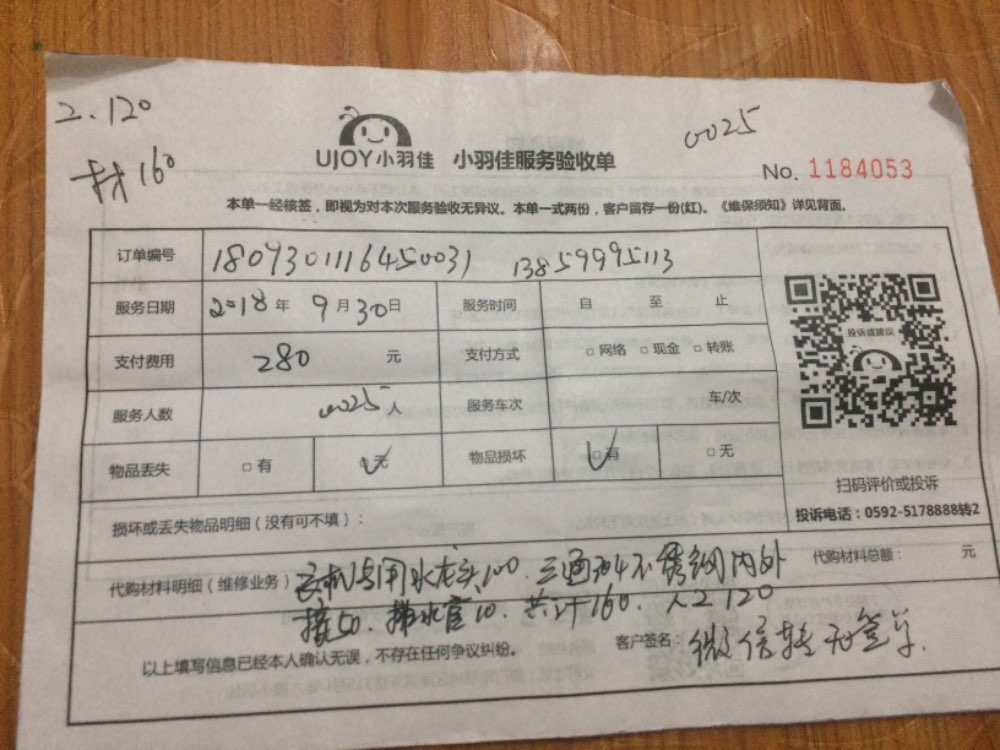 2.120
材160
UJOY小羽佳 小羽佳服务验收单
0025
No. 1184053
本单一经核签，即视为对本次服务验收无异议。本单一式两份，客户留存一份(红)。《维保须知》详见背面。
订单编号 1809301116450031 13859995113
服务日期 2018年9月30日 服务时间 自 至 止
支付费用 280 元 支付方式 □网络 □现金 □转账
服务人数 0025人 服务车次 车/次
物品丢失 □有 □无 物品损坏 □有 □无
投诉或建议
扫码评价或投诉
投诉电话：0592-5178888转2
损坏或丢失物品明细（没有可不填）：
代购材料明细（维修业务） 洗机专用水龙头100．三通304不锈钢内外
代购材料总额： 元
接50．排水管10．共计160．人工120
以上填写信息已经本人确认无误，不存在任何争议纠纷。 客户签名： 微信转无签单．